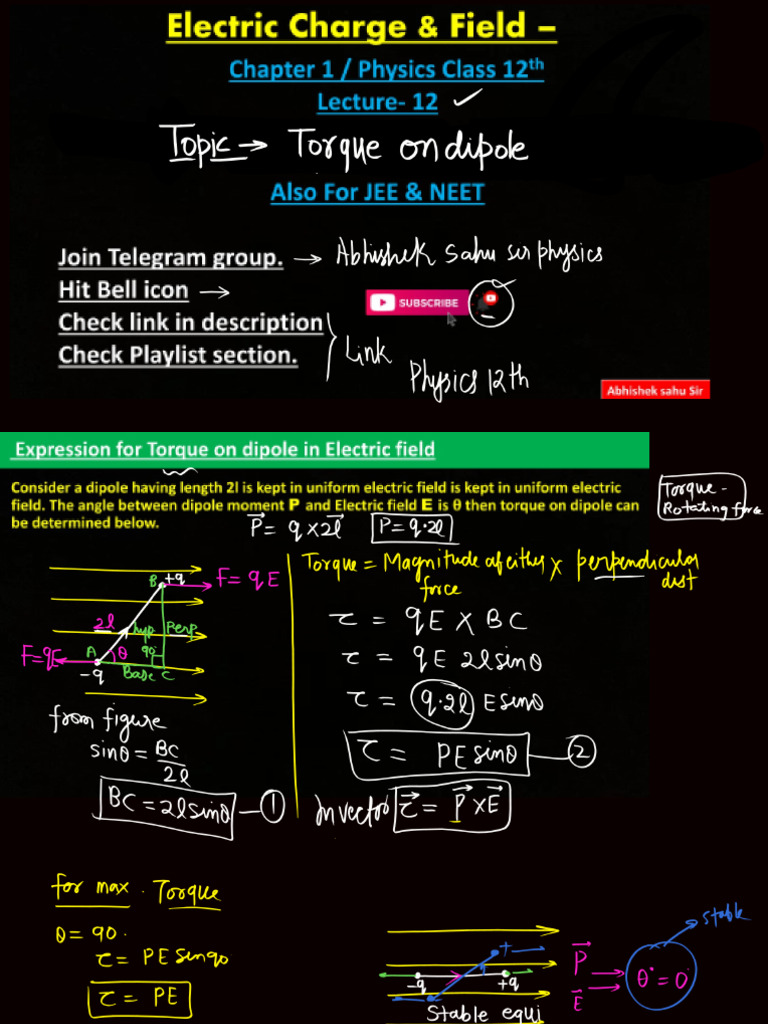 Electric Charge & Field –
Chapter 1 / Physics Class 12th
Lecture- 12
Topic → Torque on dipole
Also For JEE & NEET
Join Telegram group. → Abhishek Sahu sir physics
Hit Bell icon →
SUBSCRIBE
Check link in description
Check Playlist section.
Link
Physics 12th
Abhishek sahu Sir
Expression for Torque on dipole in Electric field
Consider a dipole having length 2l is kept in uniform electric field is kept in uniform electric
field. The angle between dipole moment P and Electric field E is θ then torque on dipole can
be determined below.
P⃗ = q × 2l⃗
P = q·2l
Torque -
Rotating force
B +q
F = qE
2l
hyp
Perp
F=qE
A
θ
90°
-q
Base
C
from figure
sinθ = BC/2l
BC = 2l sinθ — ①
Torque = Magnitude of either force × perpendicular dist
τ = qE × BC
τ = qE 2l sinθ
τ = q·2l E sinθ
τ = PE sinθ — ②
In vector τ⃗ = P⃗ × E⃗
for max. Torque
θ = 90.
τ = PE sin90
τ = PE
+
-q
+q
Stable equi
P⃗
E⃗
θ° = 0°
stable